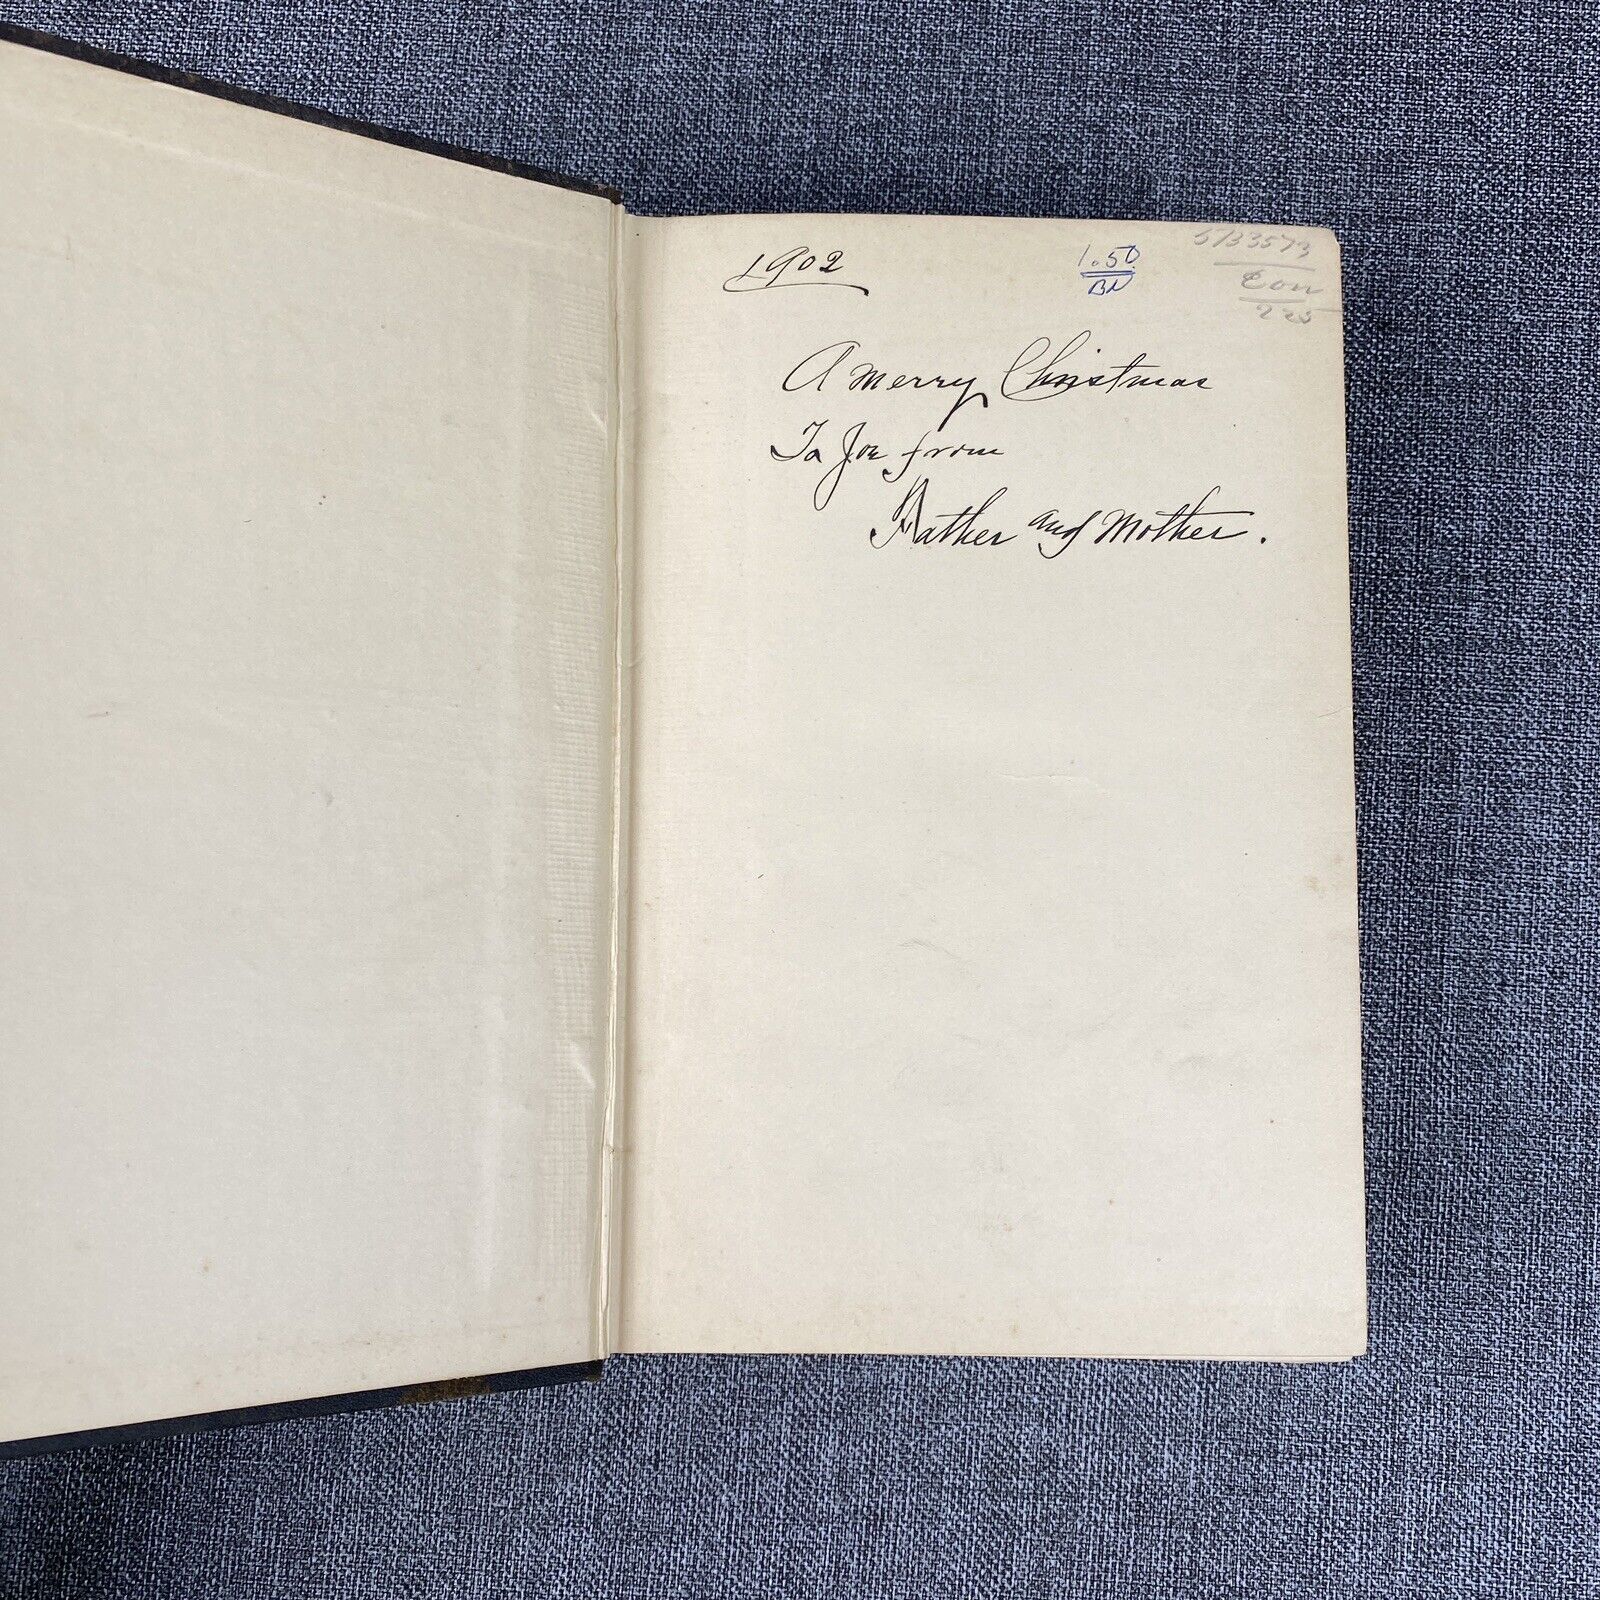 1902
1.50
BN
5733573
A merry Christmas
To Joe from
Father and Mother.